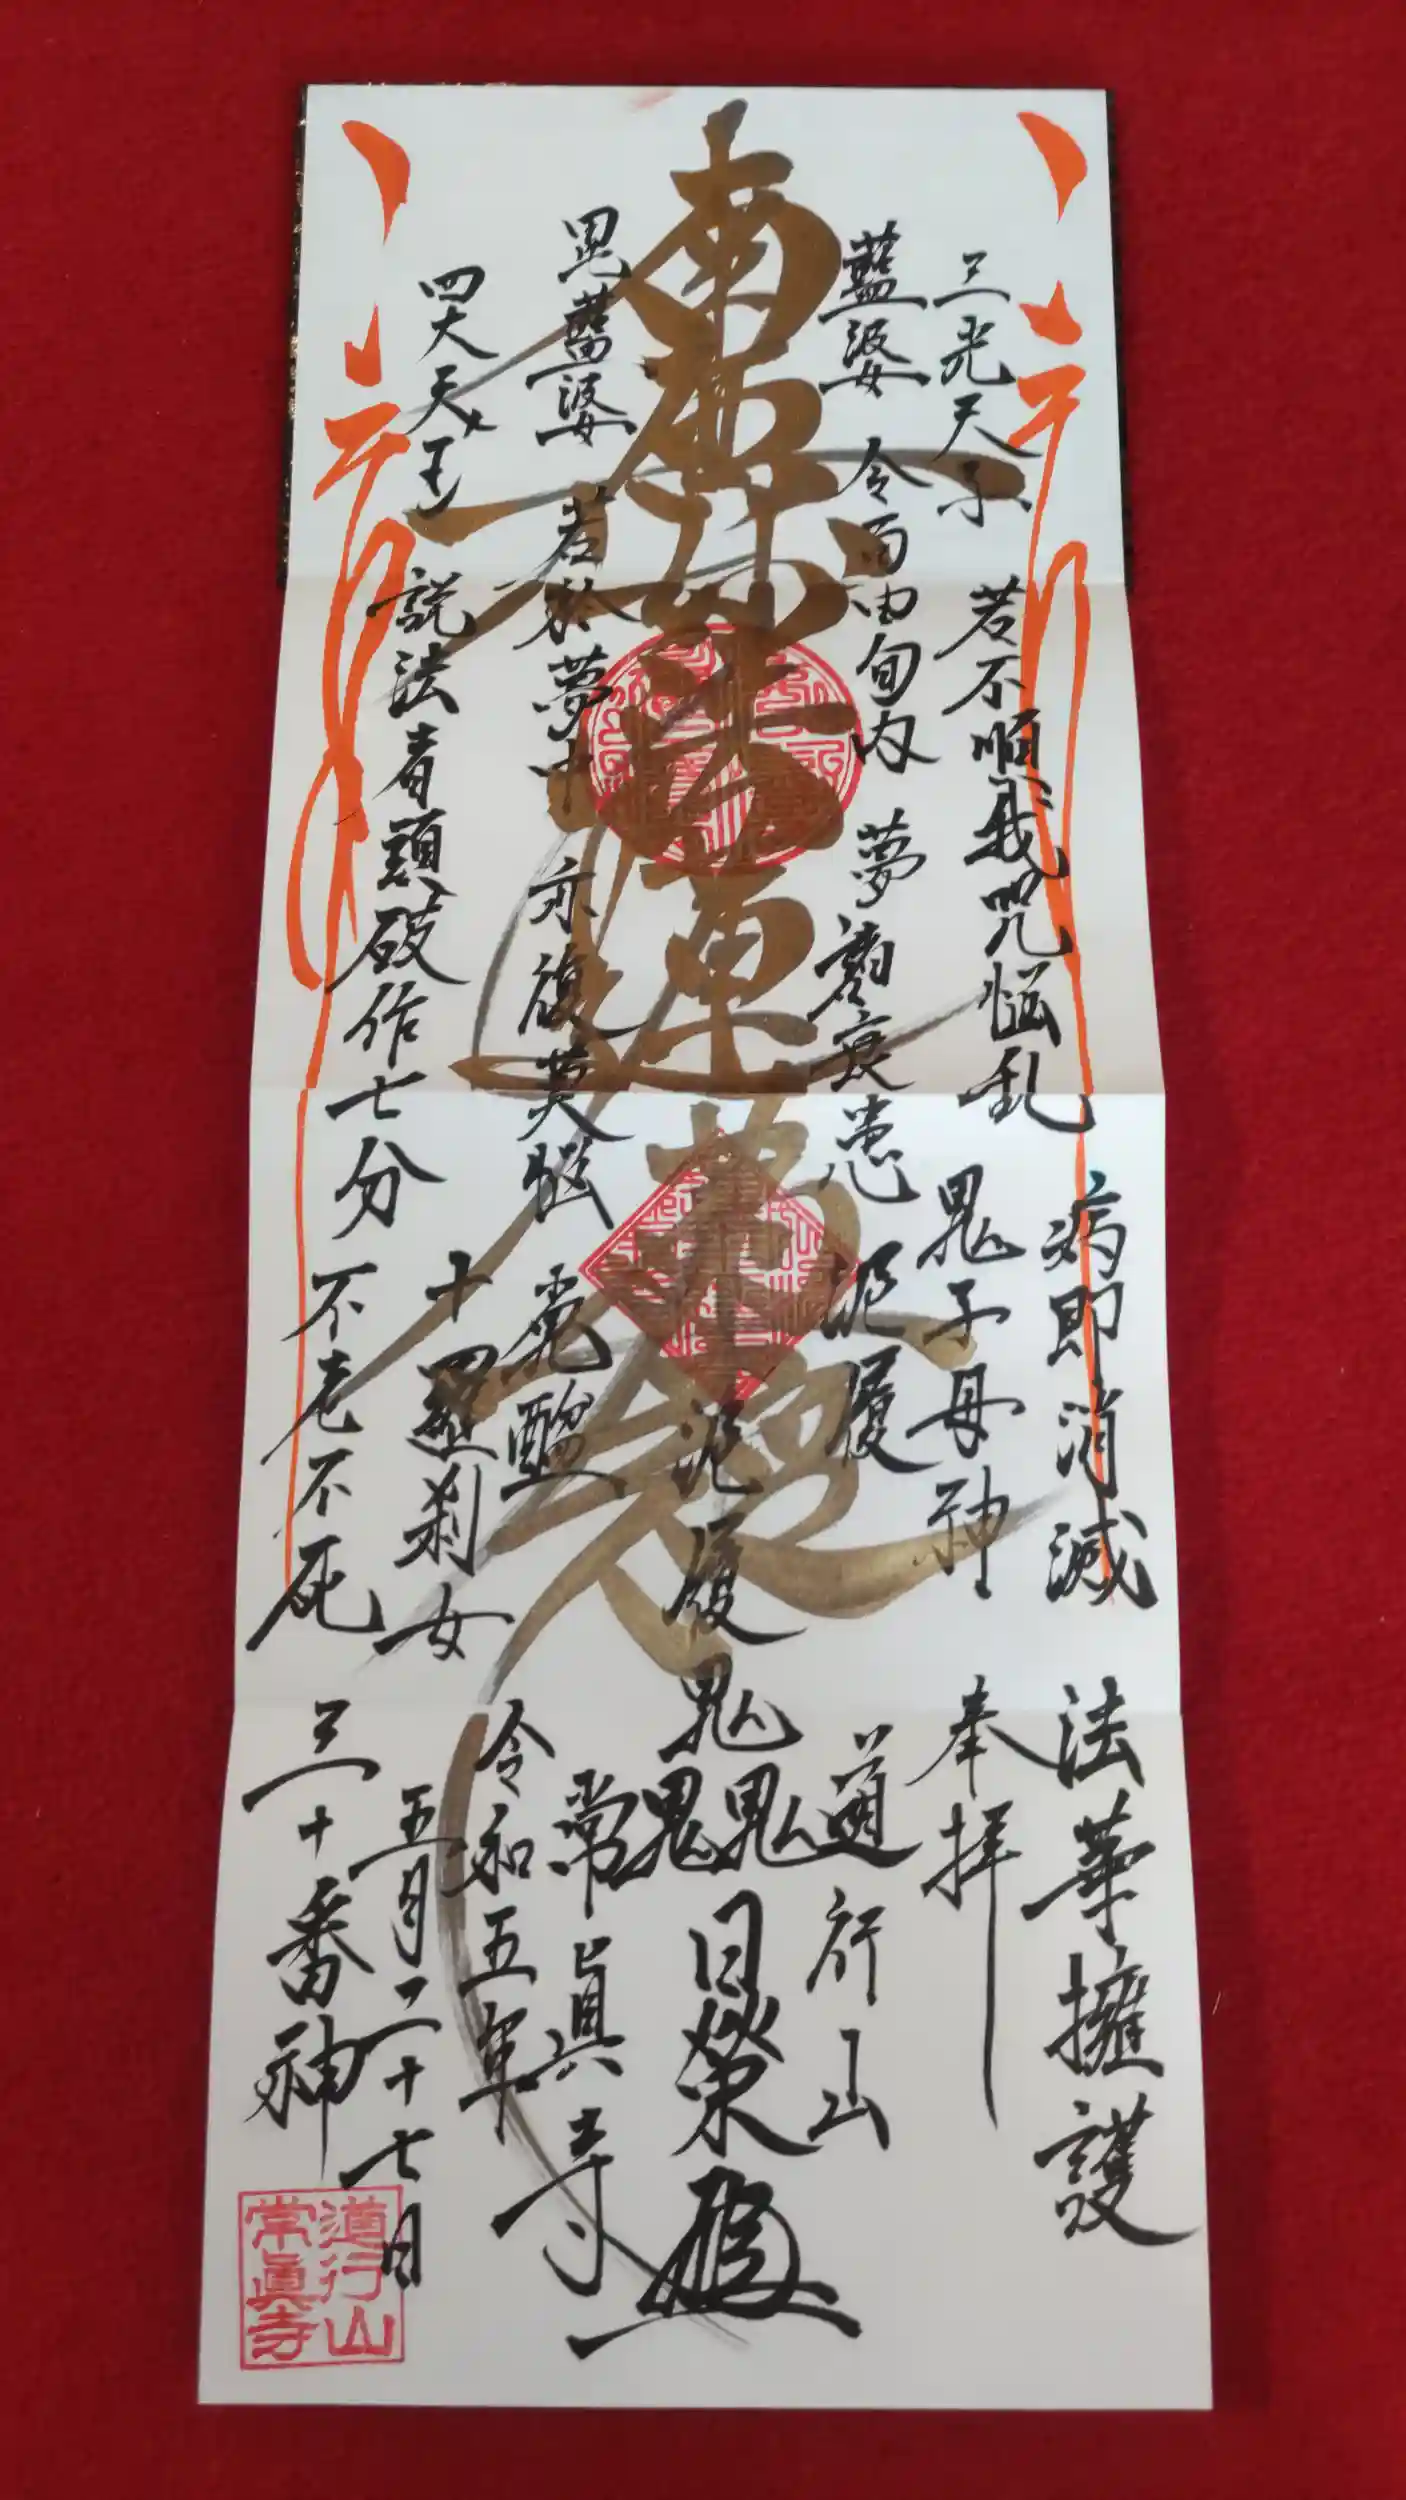 三光天子
若不順我咒
惱乱
病即消滅
法華擁護
藍婆
令百由旬内
鬼子母神
奉拝
夢
衰患
泥履
道行山
南無妙法蓮華経
泥履
鬼
鬼
鬼
日榮
毘藍婆
若於夢中
亦復莫惱
常眞寺
令和五年
四大天王
説法者頭破作七分
十羅刹女
五月二十七日
不老不死
三十番神
道行山
常眞寺